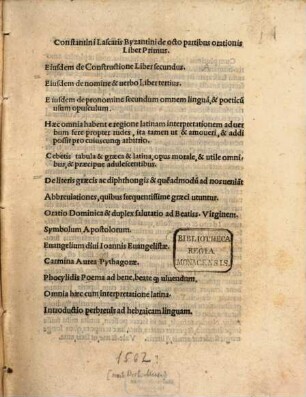 Constantini Lascaris Byzantini de octo partibus orationis
Liber Primus.
Eiusdem de Constructione Liber secundus.
Eiusdem de nomine & uerbo Liber tertius.
Eiusdem de pronomine secundum omnem linguā, & poeticū
usum opusculum.
Hæc omnia habent e regione latinam interpretationem ad uer
bum fere propter rudes, ita tamen ut & amoueri, & addi
possit pro cuiuscunq; arbitrio.
Cebetis tabula & græca & latina, opus morale, & utile omni
bus, & præcipue adulescentibus.
De literis græcis ac diphthongis & quēadmodū ad nos ueniāt
Abbreuiationes, quibus frequentissime græci utuntur.
Oratio Dominica & duplex salutatio ad Beatiss. Virginem.
Symbolum Apostolorum.
Euangelium diui Ioannis Euangelistæ.
Carmina Aurea Pythagoræ.
Phocylidis Poema ad bene, beateq; uiuendum.
Omnia hæc cum interpretatione latina.
Introductio perbreuis ad hebraicam linguam.
BIBLIOTHECA
REGIA
MONACENSIS.
1502?